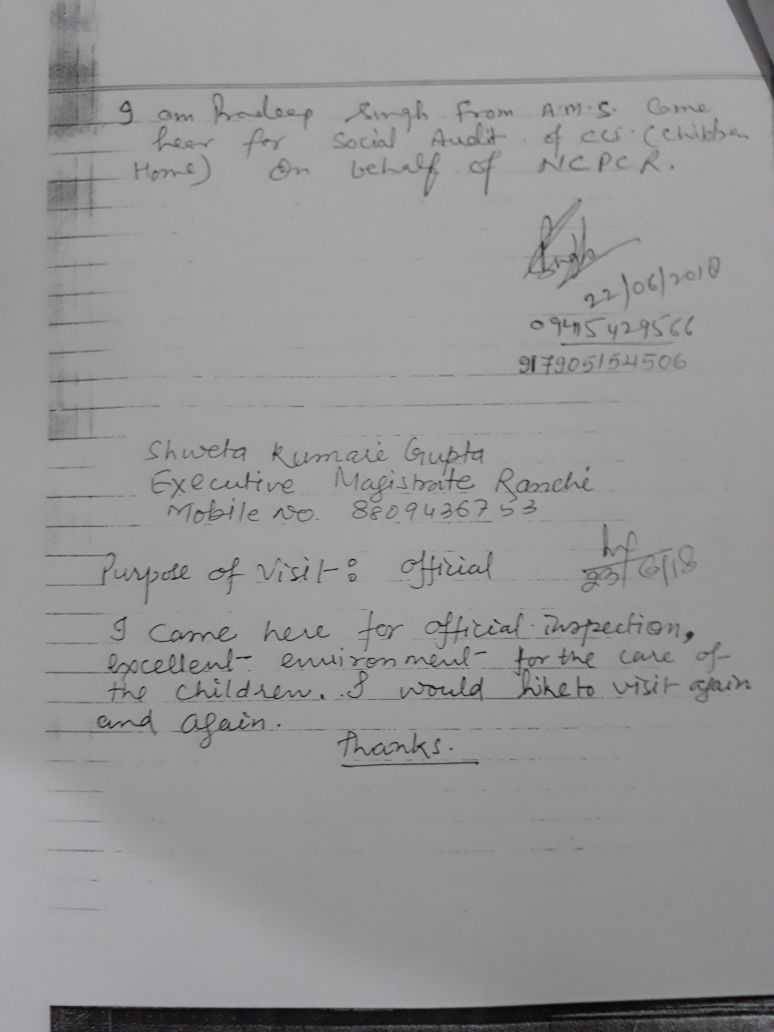 I am Pradeep Singh from A.M.S. Come
hear for Social Audit of CCI. (Children
Home) On behalf of NCPCR.
Singh
22/06/2018
5429566
917905154506
Shweta Kumari Gupta
Executive Magistrate Ranchi
Mobile No. 8809436753
Purpose of Visit: Official
23/6/18
I came here for official inspection,
excellent environment for the care of
the children. I would like to visit again
and again.
Thanks.